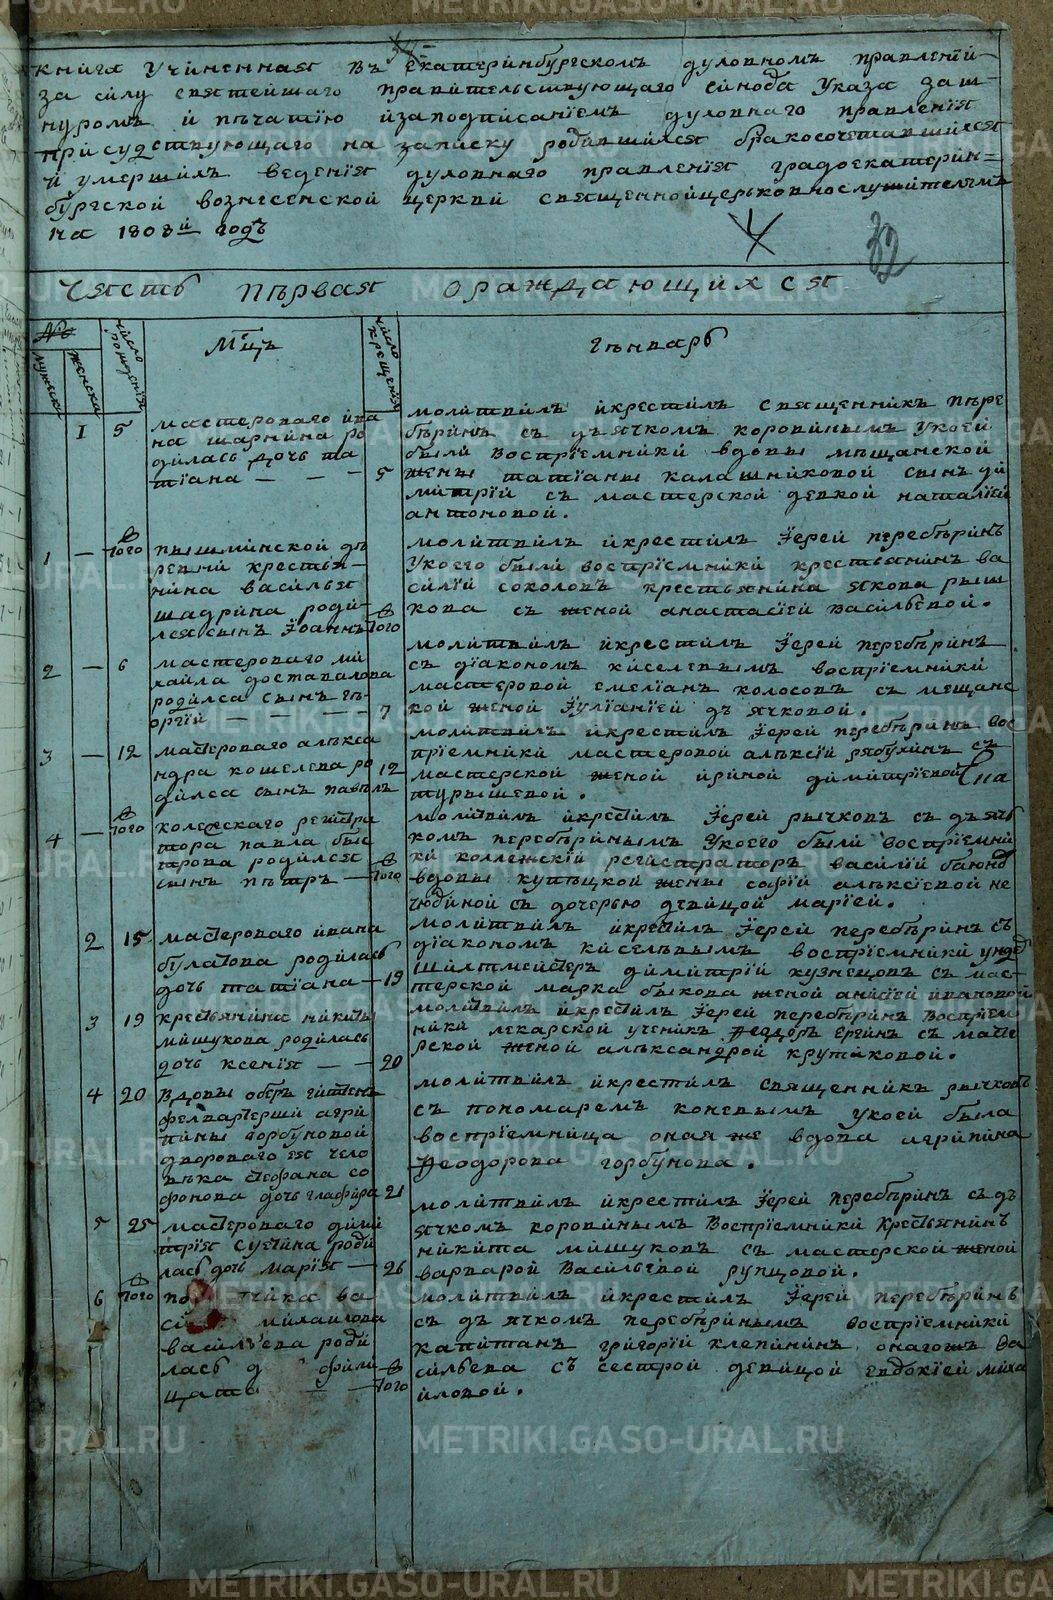 книга учиненная въ екатеринбургскомъ духовномъ правленiи
за силу святейшаго правительствующаго синода указа за ш
нуромъ и печатiю изаподписанiемъ духовнаго правленiя
присудствующаго на записку родившихся бракосочетавшихся
и умершихъ веденiя духовнаго правленiя градоекатерин=
бургской вознесенской церкви священноицерьковнослужителямъ
на 1808й годъ
32
Часть първая ораждающихся
№
мужска
женска
число рожденiя
Мцъ
число крещенiя
гѣнварь
1 5
мастероваго ива
на шарнина ро
дилась дочь та
тiана — — — 5
молитвилъ икрестилъ священникъ пере
бѣринъ съ дьячкомъ коровинымъ укоей
были воспрiемники вдовы мѣщанской
жены татiаны калашниковой сынъ ди
митрiй съ мастерской девкой наталiей
антоновой.
1 — того
пышминской дѣ
ревни крестья-
нина василья
шадрина роди-
лся сынъ Iоаннъ того
молитвилъ икрестилъ Iерей перебѣринъ
укоего были воспрiемники крестянинъ ва
силiй соколовъ крестьянина якова рыш
кова съ женой анастасiей васильевой.
2 — 6
мастероваго ми
хайла доставалова
родился сынъ гѣ-
оргiй — — — 7
молитвилъ икрестилъ Iерей перебѣринъ
съ дiакономъ киселевымъ воспрiемники
мастеровой емелiанъ колосовъ съ мещанс
кой женой Iулiанiей дьячковой.
3 — 12
мастероваго алѣкса
ндра кошелева ро
дился сынъ павелъ
12
молитвилъ икрестилъ Iерей перебѣринъ вос
прiемники мастеровой алѣксiй рябухинъ съ
мастерской женой ириной димитрiевой
турышевой.
4 — того
колежскаго регистра
тора павла быс
трова родился
сынъ пѣтръ — того
молитвилъ икрестилъ Iерей рычковъ съ дьяч
комъ перебѣринымъ укоего были воспрiемни
ки коллежскiй регистраторъ василiй
вдовы купѣцкой жены софiй алѣксiевой не
чюдиной съ дочерью девицой марiей.
2 15
мастероваго ивана
булатова родилась
дочь татiана — 19
молитвилъ икрестилъ Iерей перебѣринъ съ
дiакономъ киселѣвымъ воспрiемники ундер
шихтмейстеръ димитрiй кузнецовъ съ мас-
терской марка быкова женой анисiей ивановой
3 19
крестьянина никиты
мишукова родилась
дочь ксенiя — — 20
молитвилъ икрестилъ Iерей перебѣринъ воспрiем
ники лекарской ученикъ Ѳеодоръ ергинъ съ масте
рской женой алѣксандрой крутиковой.
4 20
вдовы оберъ гиттенъ
фервалтерши агри
пины горбуновой
двороваго ея чело
вѣка стефана со
фонова дочь глафира 21
молитвилъ икрестилъ священникъ рычковъ
съ пономаремъ коневымъ укоей была
воспрiемница оная же вдова агрипина
Ѳеодорова горбунова.
5 25
мастероваго дими
трiя сустина роди
лась дочь марiя — 26
молитвилъ икрестилъ Iерей перебѣринъ съ дь
ячкомъ коровинымъ воспрiемники крестьянинъ
никита мишуковъ съ мастерской женой
варварой васильевой рупцовой.
6 того
ва
михайлова
васильева роди
лась
цата — — того
молитвилъ икрестилъ Iерей перебѣринъ
съ дьячкомъ перебѣринымъ воспрiемники
капитанъ григорiй клепининъ онагожъ ва
сильева съ сестрой девицой евдокiей миха
йловой.
METRIKI.GASO-URAL.RU